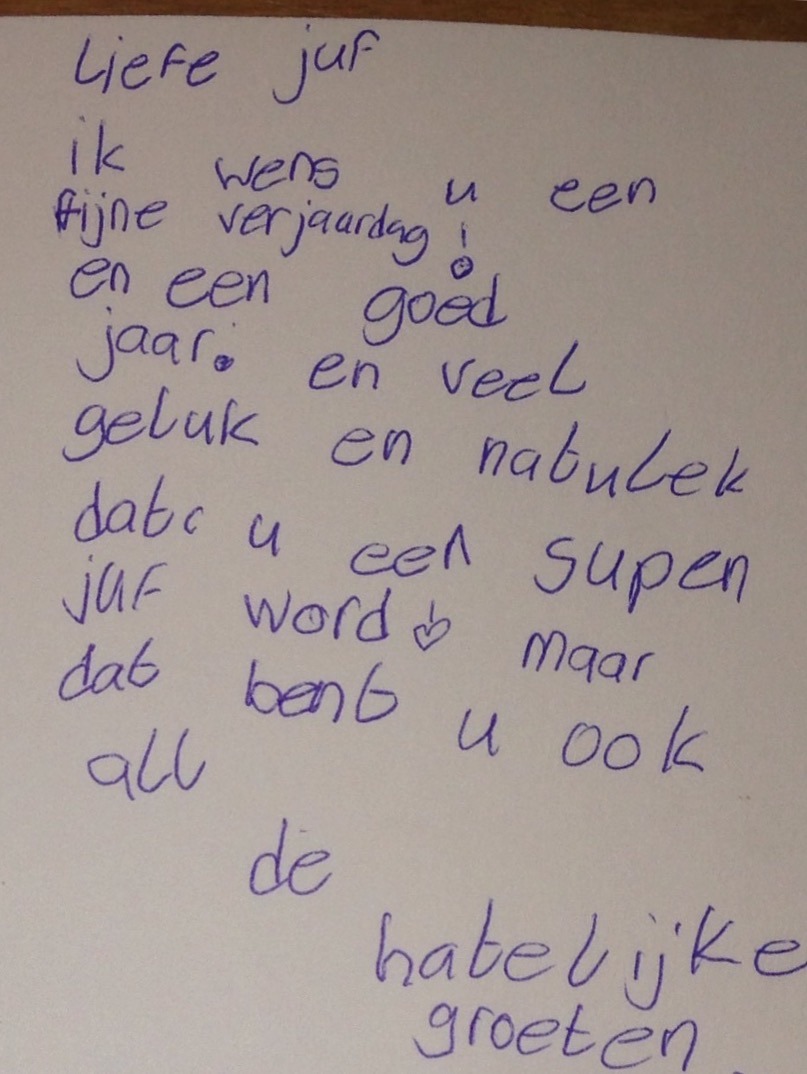 Liefe juf
ik wens u een
fijne verjaardag!
en een goed
jaar. en veel
geluk en natulek
dat u een supen
juf word maar
dat bent u ook
all
de
hatelijke
groeten